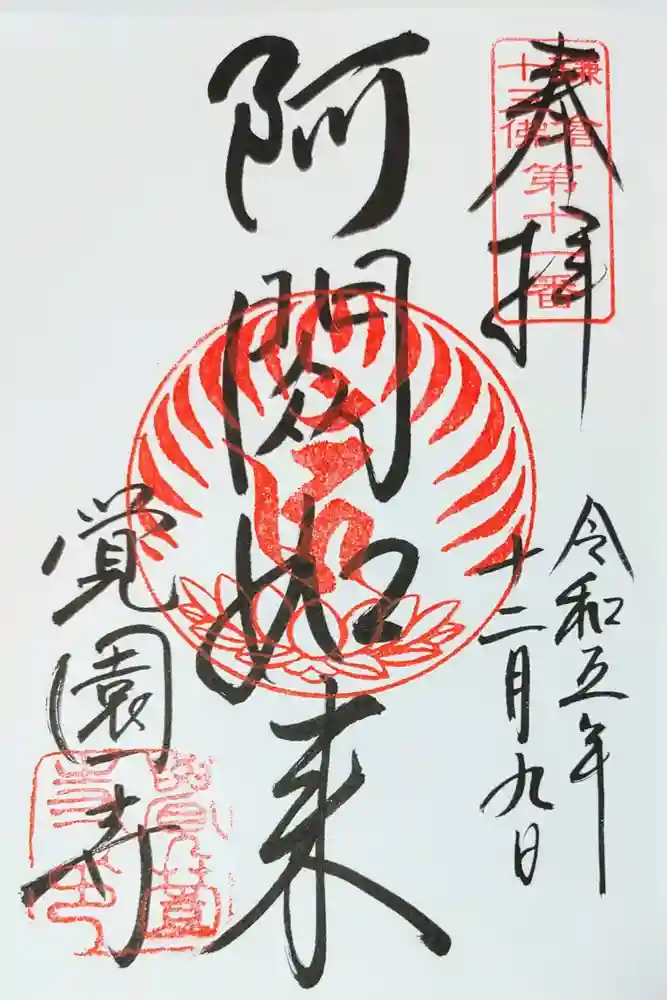 奉拝
鎌倉
十三佛
第十一番
令和五年
十二月九日
阿閦如来
覚園寺